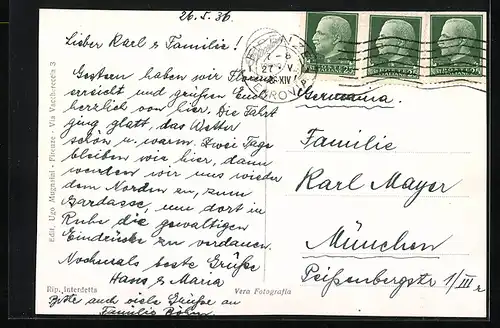 26.5.36.
Lieber Karl & Familie!
Gestern haben wir Florenz
erreicht und grüßen Euch
herzlich von hier. Die Fahrt
ging glatt, das Wetter
schön u. warm. Zwei Tage
bleiben wir hier, dann
wenden wir uns wieder
dem Norden zu, zum
Gardasee, um dort in
Ruhe die gewaltigen
Eindrücke zu verdauen.
Nochmals beste Grüße
Hans & Maria
Bitte auch viele Grüsse an
Familie Böhm
Edit. Ugo Mugnaini - Firenze - Via Vacchereccia 3
Rip. Interdetta
Vera Fotografia
FIRENZE
FERROVIA
Germania.
Familie
Karl Mayer
München
Peißenbergstr 1/III r